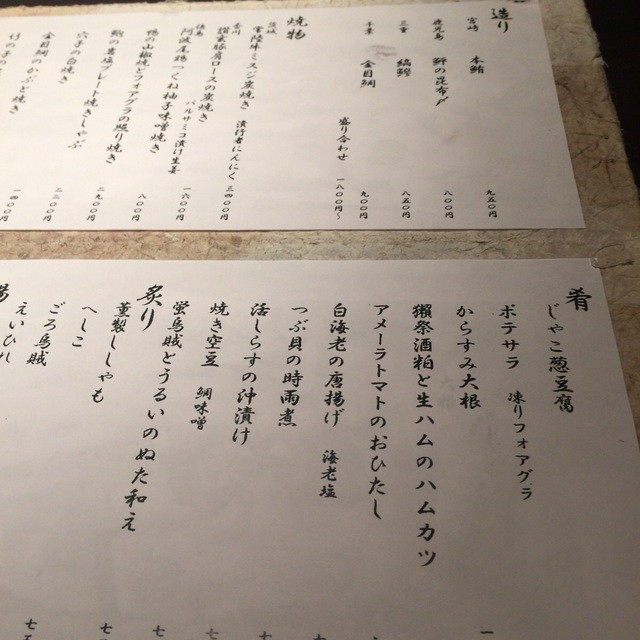 造り
宮崎 本鮪 九五〇円
鹿児島 鮃の昆布〆 八〇〇円
三重 縞鰺 八五〇円
千葉 金目鯛 九〇〇円
盛り合わせ 一八〇〇円〜
焼物
茨城 常陸牛ミスジ炭焼き 漬行者にんにく 三四〇〇円
香川 讃岐豚肩ロースの炭焼き バルサミコ漬け生姜 一六〇〇円
徳島 阿波尾鶏つくね柚子味噌焼き
鴨の山椒焼とフォアグラの照り焼き 八〇〇円
鮪の岩塩プレート焼きしゃぶ 二九〇〇円
穴子の白焼き
金目鯛のかぶと焼き 二二〇〇円
一四〇〇円
肴
じゃこ葱豆腐
ポテサラ 凍りフォアグラ
からすみ大根
獺祭酒粕と生ハムのハムカツ
アメーラトマトのおひたし
白海老の唐揚げ 海老塩
つぶ貝の時雨煮
活しらすの沖漬け
焼き空豆 鯛味噌
蛍烏賊とうるいのぬた和え
炙り
薫製ししゃも
へしこ
ごろ烏賊
えいひれ